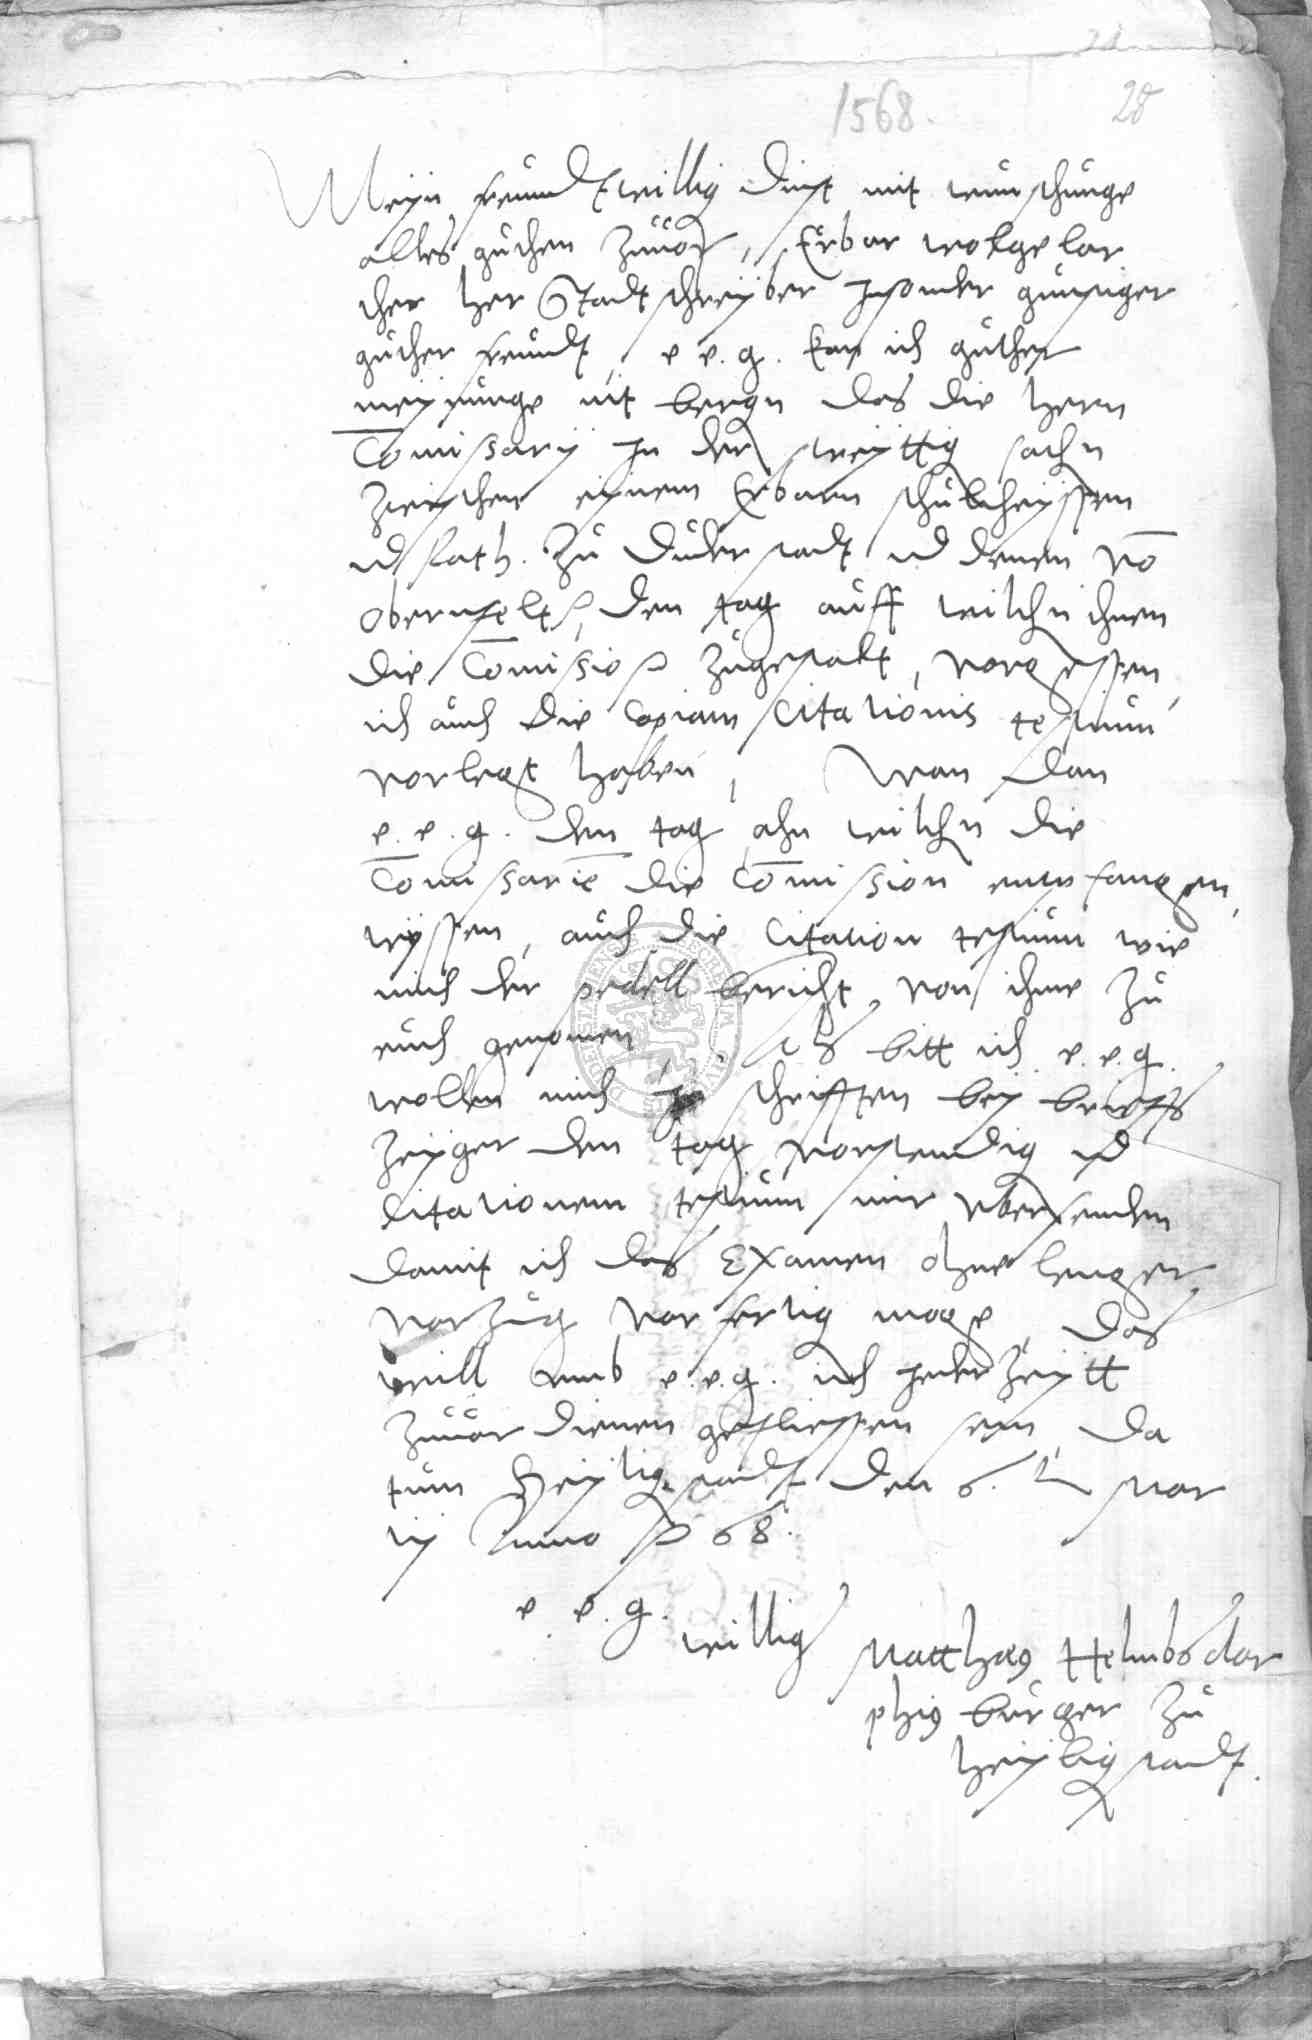 28
1568.
28
Meyn freundtwillig dinst mit wunschunge
alles guthen zuuor, Erbar wolgelar
ther her Stadtschreyber jnsonder gunstiger
guther freundt, e e. g. kan ich guther
meynunge nit bergn das die hern
Com̄issarij jn der streyttig sachn
zwischen eynem Erbarn schultheyssen
vnd Rath. zu duderstadt vnd denen vō
Obernfelt, den tag auff wilchn ihnen
die Com̄ission zugestalt, vorgessen,
ich auch die Copiam Citationis testium
vorlegt haben, Wan dan
e. e. g. den tag ahn wilchn die
Com̄issarie die Com̄ission entpfangen,
wyssen, auch die Citation testium wie
mich der pedell bericht, von ihme zu
euch genomen, Als bitt ich e. e. g.
wollen mich jn schrifften bey brieffs
zeyger den tag vorstendig vnd
Citationem testium mir vbersenden
damit ich das Examen ohne lenger
vorzug vorfertig moge, das
will vmb e. e. g. ich jeder zeytt
zuuor dienen geflissen sein, Da
tum Heyligstadt den 6. Mar
tij Anno p 68.
e. e. g.
williger
Matthaeus Helmbsdor
phius burger zu
heyligstadt.